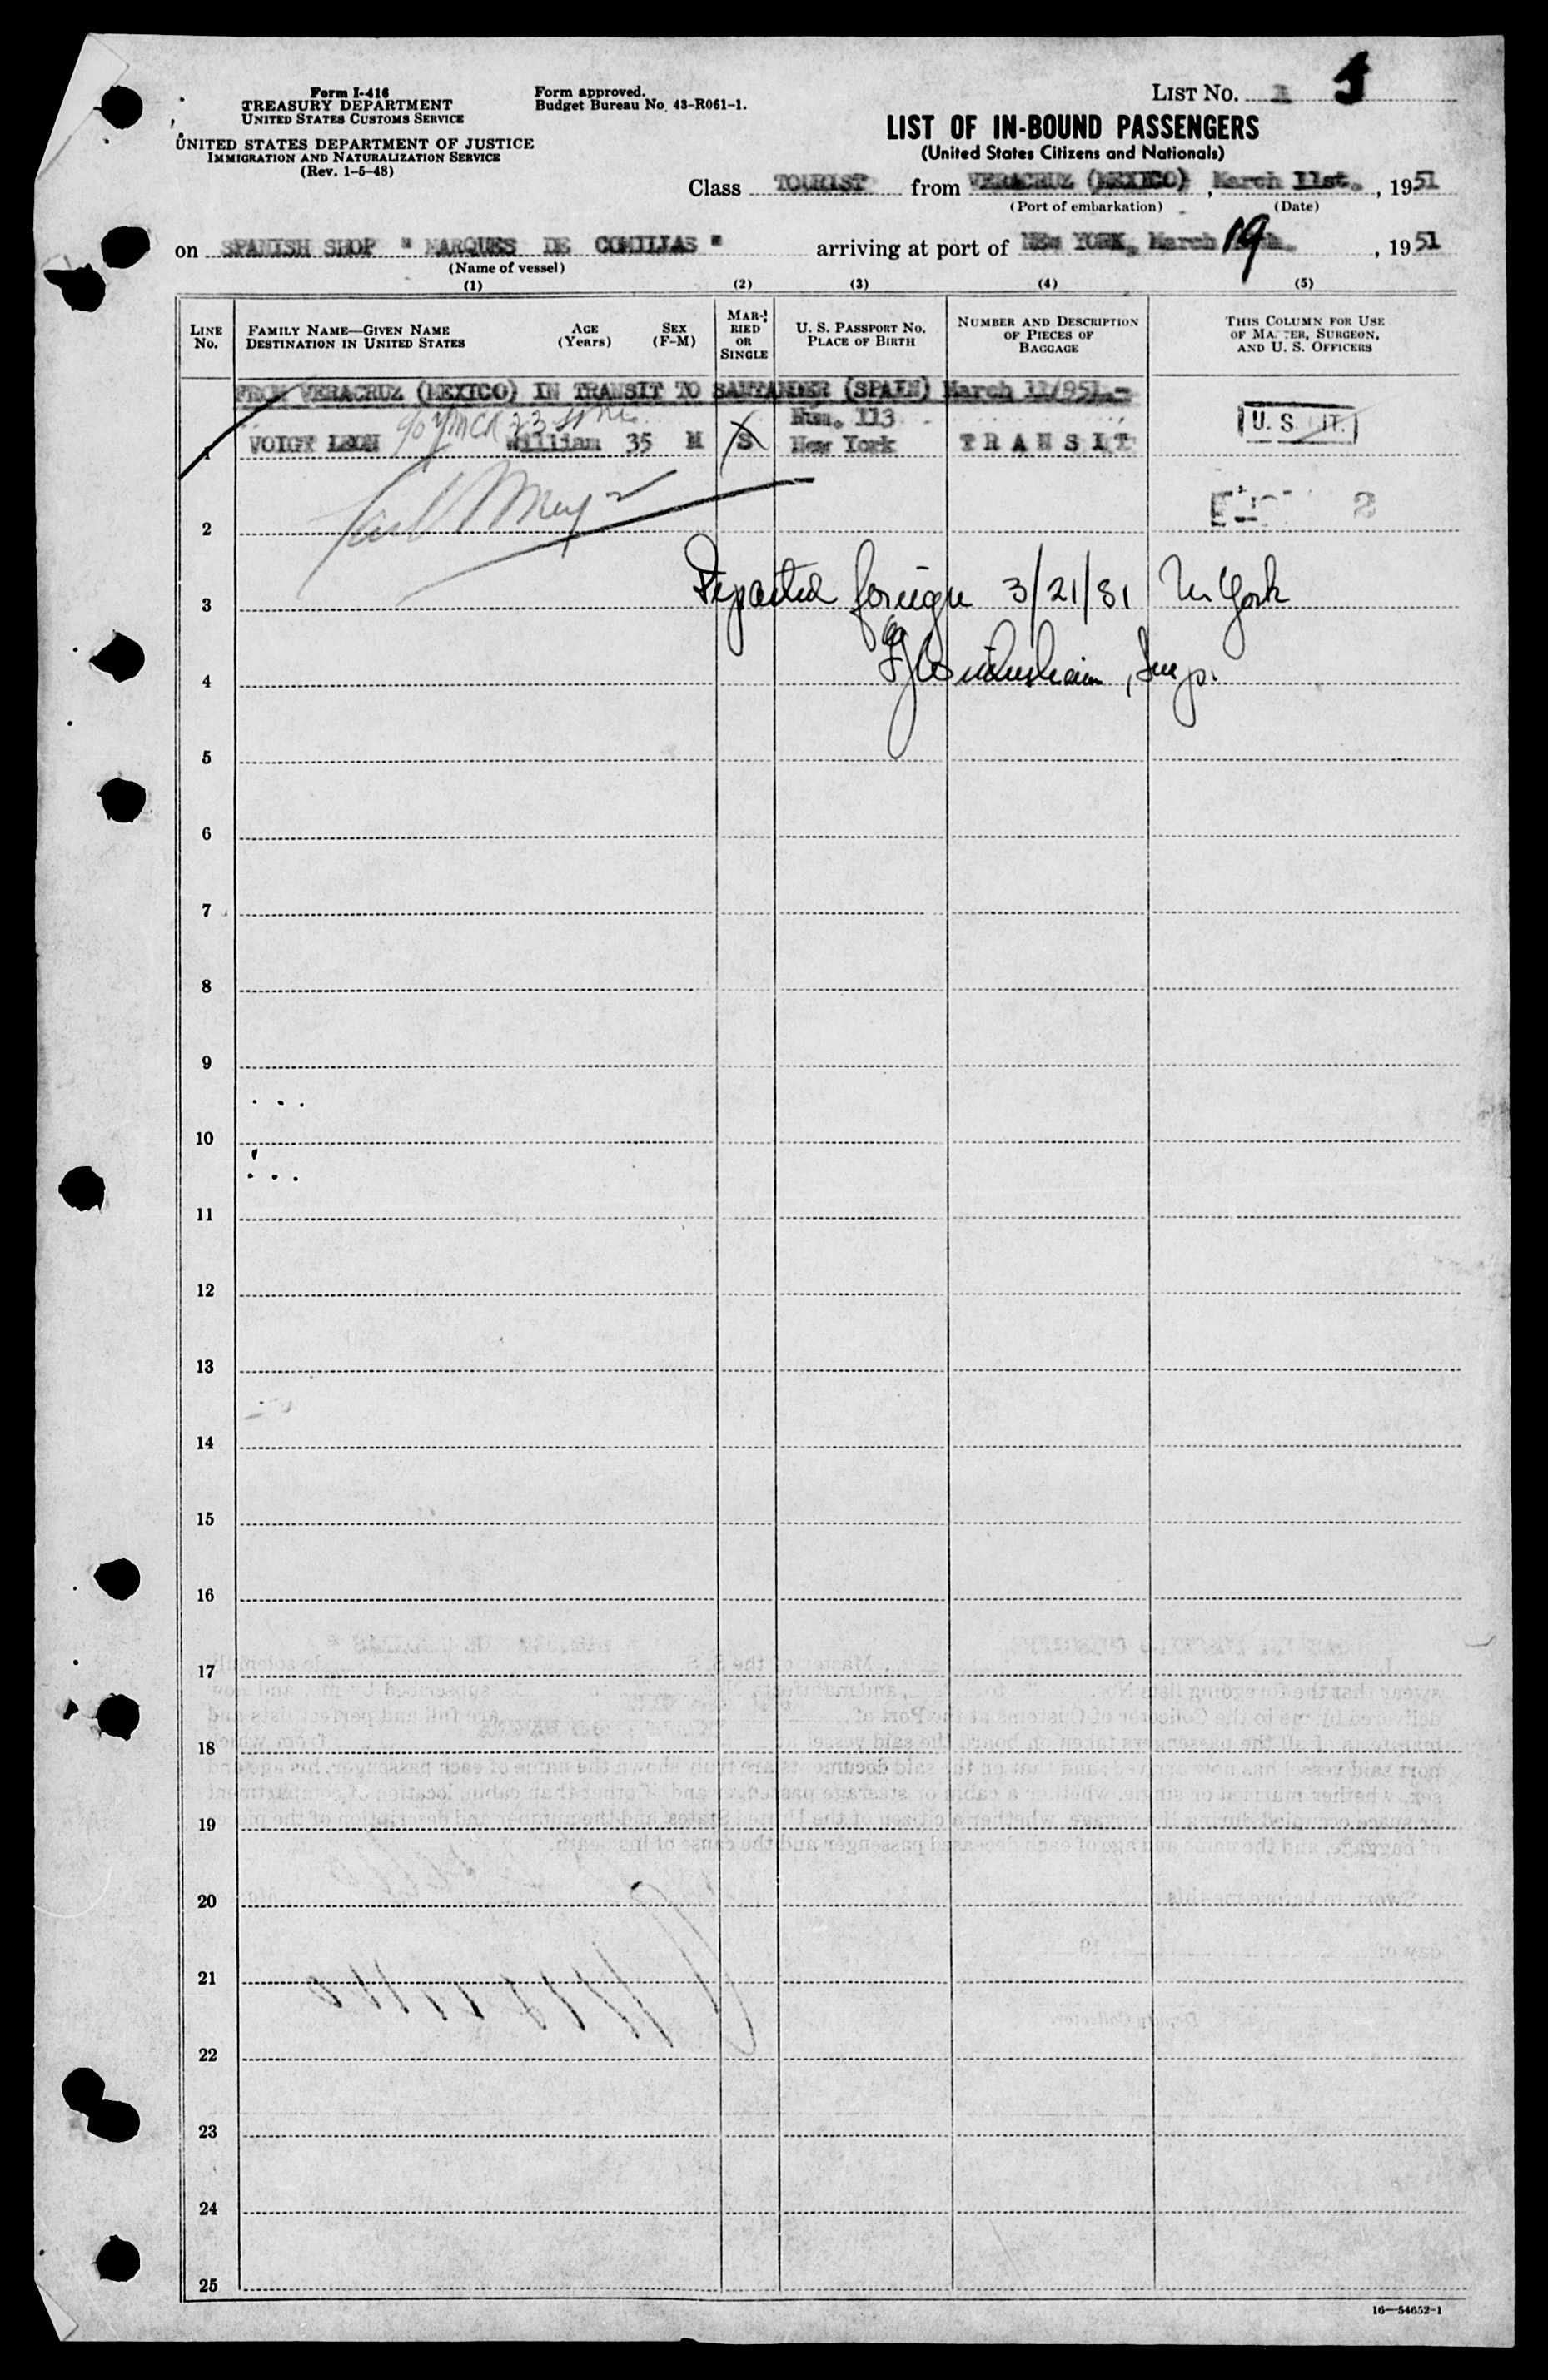 Form I-416
TREASURY DEPARTMENT
UNITED STATES CUSTOMS SERVICE
UNITED STATES DEPARTMENT OF JUSTICE
IMMIGRATION AND NATURALIZATION SERVICE
(Rev. 1-5-48)
Form approved.
Budget Bureau No. 43-R061-1.
LIST NO.
LIST OF IN-BOUND PASSENGERS
(United States Citizens and Nationals)
Class TOURIST from VERACRUZ (MEXICO), March 11st., 1951
(Port of embarkation) (Date)
on SPANISH SHOP " MARQUES DE COMILLAS " arriving at port of NEW YORK, March 19, 1951
(Name of vessel)
(1) (2) (3) (4) (5)
LINE No.
FAMILY NAME—GIVEN NAME
DESTINATION IN UNITED STATES
AGE (Years)
SEX (F-M)
MARRIED OR SINGLE
U. S. PASSPORT NO.
PLACE OF BIRTH
NUMBER AND DESCRIPTION OF PIECES OF BAGGAGE
THIS COLUMN FOR USE OF MASTER, SURGEON, AND U. S. OFFICERS
FROM VERACRUZ (MEXICO) IN TRANSIT TO SANTANDER (SPAIN) March 11/951.-
Num. 113
1 VOIGT LEON William 35 M S New York TRANSIT
U. S. IT.
2
3 Departed foreign 3/21/51 N York
4
5
6
7
8
9
10
11
12
13
14
15
16
17
18
19
20
21
22
23
24
25
16—54652-1